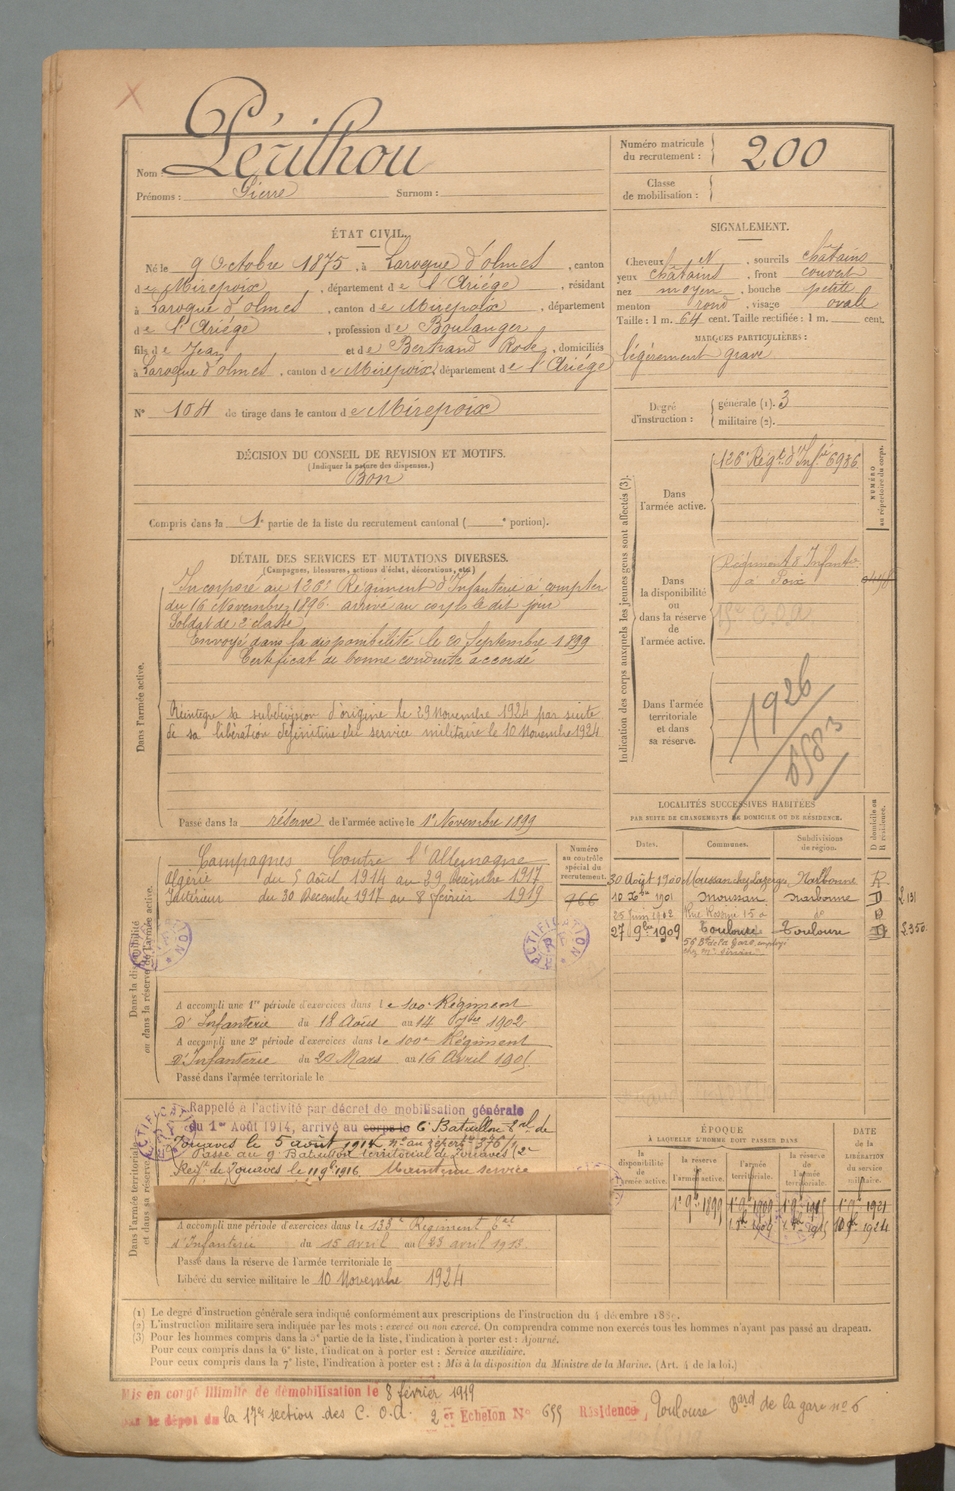 Nom Périlhou
Prénoms : Pierre Surnom :
Numéro matricule du recrutement : 200
Classe de mobilisation :
ÉTAT CIVIL.
Né le 9 Octobre 1875, à Laroque d'olmes, canton
de Mirepoix, département de l'Ariège, résidant
à Laroque d'olmes, canton de Mirepoix, département
de l'Ariége, profession de Boulanger
fils de Jean et de Bertrand Rose, domiciliés
à Laroque d'olmes, canton de Mirepoix, département de l'Ariége
N° 104 de tirage dans le canton de Mirepoix
SIGNALEMENT.
Cheveux N, sourcils châtains
yeux châtains, front couvert
nez moyen, bouche petite
menton rond, visage ovale
Taille : 1 m. 64 cent. Taille rectifiée : 1 m. cent.
MARQUES PARTICULIÈRES :
légèrement gravé
Degré d'instruction : générale (1). 3
militaire (2).
DÉCISION DU CONSEIL DE REVISION ET MOTIFS.
(Indiquer la nature des dispenses.)
Bon
Compris dans la 1e partie de la liste du recrutement cantonal ( e portion).
DÉTAIL DES SERVICES ET MUTATIONS DIVERSES.
(Campagnes, blessures, actions d'éclat, décorations, etc.)
Dans l'armée active.
Incorporé au 126e Régiment d'Infanterie à compter
du 16 Novembre 1896. arrivé au corps le dit jour
Soldat de 2e classe
Envoyé dans la disponibilité le 20 Septembre 1899
Certificat de bonne conduite accordé
Réintègre sa subdivision d'origine le 29 Novembre 1924 par suite
de sa libération définitive du service militaire le 10 Novembre 1924
Passé dans la réserve de l'armée active le 1er Novembre 1899
Indication des corps auxquels les jeunes gens sont affectés (3).
NUMÉRO au répertoire du corps.
Dans l'armée active.
126e Régt d'Infie 6986
Dans la disponibilité ou dans la réserve de l'armée active.
Régiment d'Infanterie
à Foix
Dans l'armée territoriale et dans sa réserve.
1926
6583
LOCALITÉS SUCCESSIVES HABITÉES
PAR SUITE DE CHANGEMENTS DE DOMICILE OU DE RÉSIDENCE.
Dates. Communes. Subdivisions de région. D domicile ou R résidence.
30 Août 1900 Narbonne R
10 Xbre 1901 Moussan Narbonne D
25 Juin 1902 do D
27 9bre 1909 Toulouse Toulouse D
Dans la disponibilité ou dans la réserve de l'armée active.
Numéro au contrôle spécial du recrutement.
966
Campagnes Contre l'Allemagne
Algérie du 5 Août 1914 au 29 Décembre 1917
Intérieur du 30 Décembre 1917 au 8 février 1919
A accompli une 1re période d'exercices dans le 100e Régiment
d'Infanterie du 18 Août au 14 7bre 1902
A accompli une 2e période d'exercices dans le 100e Régiment
d'Infanterie du 20 Mars au 16 Avril 1905
Passé dans l'armée territoriale le
Dans l'armée territoriale et dans sa réserve.
Rappelé à l'activité par décret de mobilisation générale
du 1er Août 1914, arrivé au corps le 6e Bataillon Tal de
Zouaves le 5 août 1914
Passé au 9e Bataillon territorial de Zouaves
Regt de Zouaves Maintenu service
A accompli une période d'exercices dans le 133e Régiment Tal
d'Infanterie du 15 avril au 23 avril 1912
Passé dans la réserve de l'armée territoriale le
Libéré du service militaire le 10 Novembre 1924
ÉPOQUE
À LAQUELLE L'HOMME DOIT PASSER DANS
DATE de la LIBÉRATION du service militaire.
la disponibilité de l'armée active. la réserve de l'armée active. l'armée territoriale. la réserve de l'armée territoriale.
(1) Le degré d'instruction générale sera indiqué conformément aux prescriptions de l'instruction du 4 décembre 1889.
(2) L'instruction militaire sera indiquée par les mots : exercé ou non exercé. On comprendra comme non exercés tous les hommes n'ayant pas passé au drapeau.
(3) Pour les hommes compris dans la 5e partie de la liste, l'indication à porter est : Ajourné.
Pour ceux compris dans la 6e liste, l'indication à porter est : Service auxiliaire.
Pour ceux compris dans la 7e liste, l'indication à porter est : Mis à la disposition du Ministre de la Marine. (Art. 4 de la loi.)
Mis en congé illimité de démobilisation le 8 février 1919
par le dépôt du la 17e section des C.O.A. 2 et Echelon N° 655 Résidence, Toulouse Bard de la gare no 6